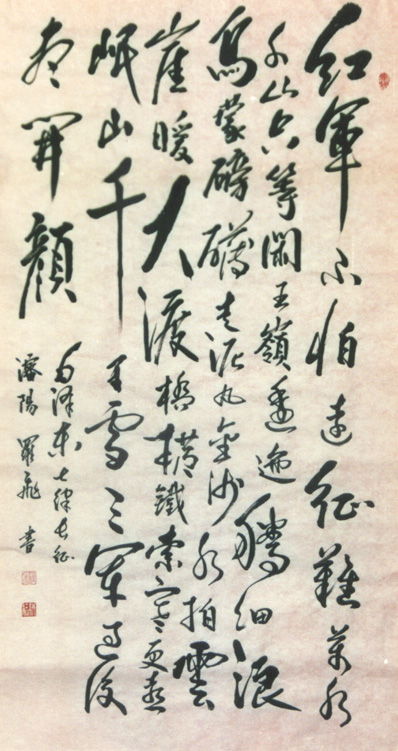 紅軍不怕遠征難萬水
千山只等閑五嶺逶迤騰細浪
烏蒙磅礴走泥丸金沙水拍雲
崖暖大渡橋橫鐵索寒更喜
岷山千里雪三軍過後
盡開顏
毛澤東七律長征
瀋陽羅飛書